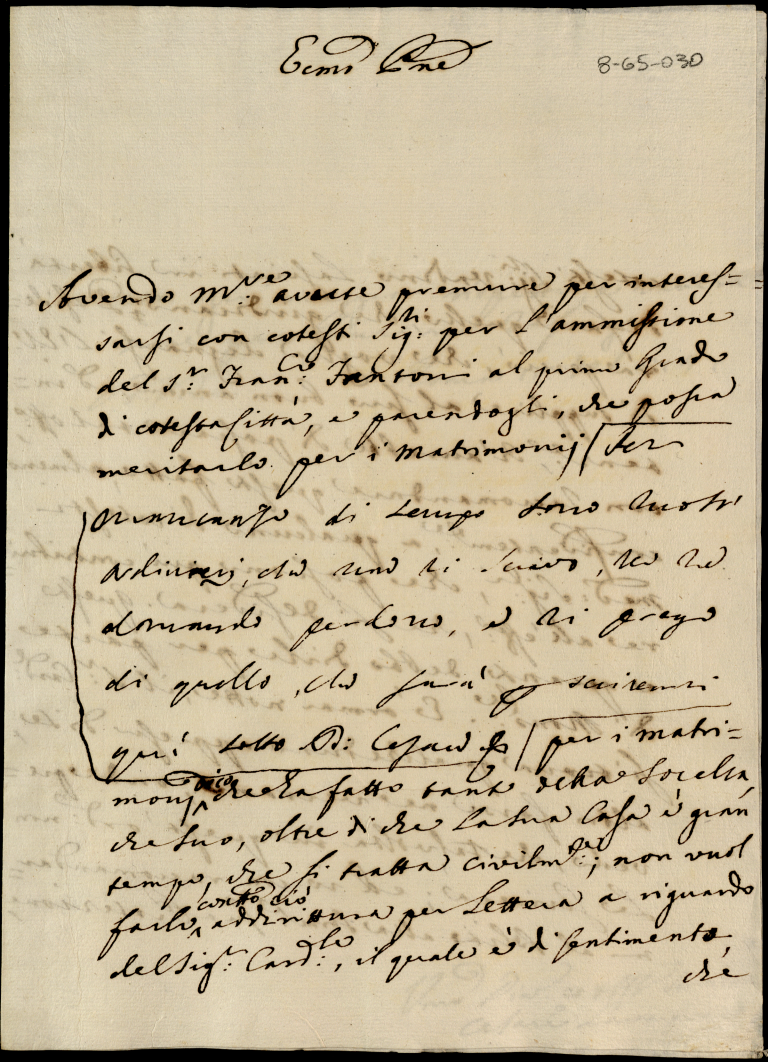 Ecmo Pne
8-65-030
Avendo Mr. ve avute premure per interes=
sarsi con cotesti Sig:ri per l'ammissione
del Sr. Fran:co Fantoni al primo Grado
di cotesta Città, e parendogli, che possa
meritarlo per i Matrimonij / Per
mancanza di tempo sono
ordinarj, che non li scrivo, ne ne
domando perdono, e li prego
di quello, che sarà
quì sotto Cesare / per i matri=
monj che ha fatto tanto della Sorella,
che suo, oltre di che la sua Casa è gran
tempo, che si tratta civilm:te; non vuol
farlo contto ciò addirittura per Lettera a riguardo
del Sig:r Card:le, il quale è di sentimento,
che